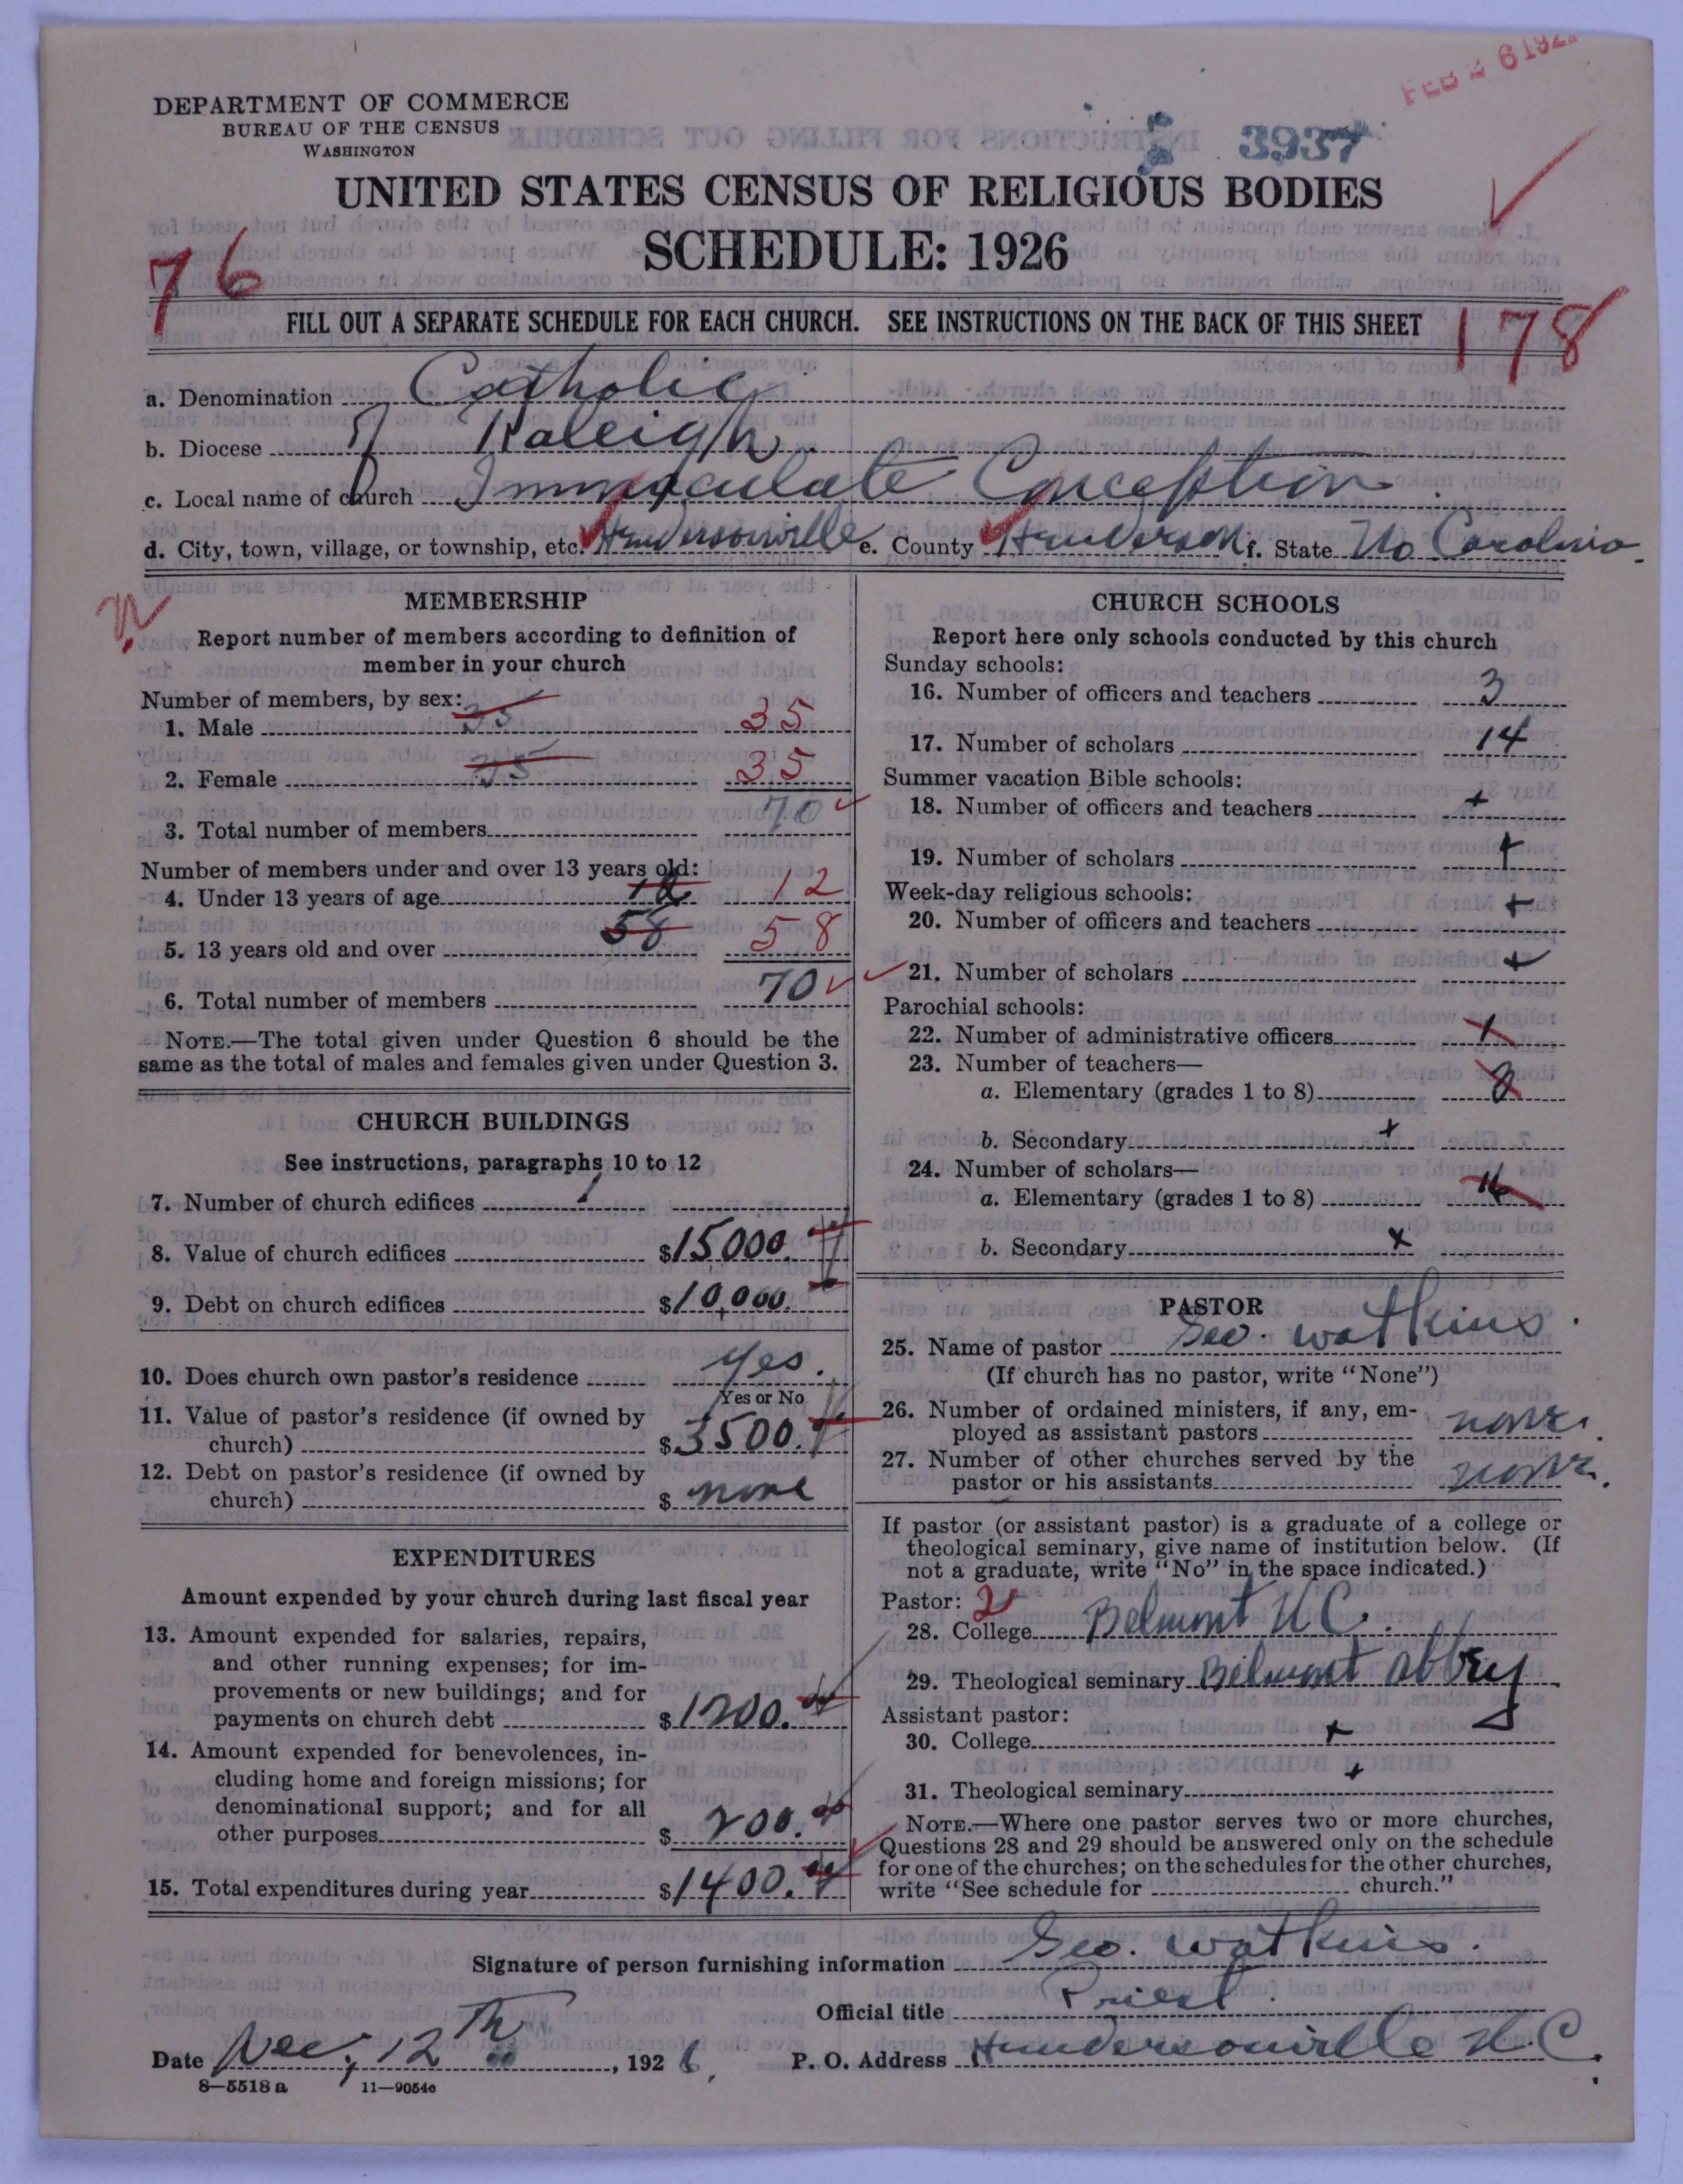 FEB 26 192
DEPARTMENT OF COMMERCE
BUREAU OF THE CENSUS
WASHINGTON
3937
UNITED STATES CENSUS OF RELIGIOUS BODIES
SCHEDULE: 1926
76
FILL OUT A SEPARATE SCHEDULE FOR EACH CHURCH. SEE INSTRUCTIONS ON THE BACK OF THIS SHEET
178
a. Denomination Catholic
b. Diocese of Raleigh
c. Local name of church Immaculate Conception
d. City, town, village, or township, etc. Hendersonville e. County Henderson f. State No Carolina
MEMBERSHIP
Report number of members according to definition of
member in your church
Number of members, by sex:
1. Male 35 35
2. Female 35 35
3. Total number of members 70
Number of members under and over 13 years old:
4. Under 13 years of age 12 12
5. 13 years old and over 58 58
6. Total number of members 70
NOTE.—The total given under Question 6 should be the
same as the total of males and females given under Question 3.
CHURCH BUILDINGS
See instructions, paragraphs 10 to 12
7. Number of church edifices 1
8. Value of church edifices $15000.
9. Debt on church edifices $10,000.
10. Does church own pastor's residence yes.
Yes or No
11. Value of pastor's residence (if owned by
church) $3500.
12. Debt on pastor's residence (if owned by
church) $ none
EXPENDITURES
Amount expended by your church during last fiscal year
13. Amount expended for salaries, repairs,
and other running expenses; for im-
provements or new buildings; and for
payments on church debt $1200.
14. Amount expended for benevolences, in-
cluding home and foreign missions; for
denominational support; and for all
other purposes $ 200.
15. Total expenditures during year $1400.
CHURCH SCHOOLS
Report here only schools conducted by this church
Sunday schools:
16. Number of officers and teachers 3
17. Number of scholars 14
Summer vacation Bible schools:
18. Number of officers and teachers +
19. Number of scholars +
Week-day religious schools:
20. Number of officers and teachers +
21. Number of scholars +
Parochial schools:
22. Number of administrative officers 1
23. Number of teachers—
a. Elementary (grades 1 to 8)
b. Secondary +
24. Number of scholars—
a. Elementary (grades 1 to 8) 14
b. Secondary x
PASTOR
25. Name of pastor Geo. Watkins.
(If church has no pastor, write "None")
26. Number of ordained ministers, if any, em-
ployed as assistant pastors none.
27. Number of other churches served by the
pastor or his assistants none.
If pastor (or assistant pastor) is a graduate of a college or
theological seminary, give name of institution below. (If
not a graduate, write "No" in the space indicated.)
Pastor: 2
28. College Belmont N C.
29. Theological seminary Belmont Abbey
Assistant pastor:
30. College +
31. Theological seminary +
NOTE.—Where one pastor serves two or more churches,
Questions 28 and 29 should be answered only on the schedule
for one of the churches; on the schedules for the other churches,
write "See schedule for church."
Signature of person furnishing information Geo. Watkins.
Official title Priest.
Date Dec, 12th, 1926, P. O. Address Hendersonville N.C.
8—5518 a 11—9054c